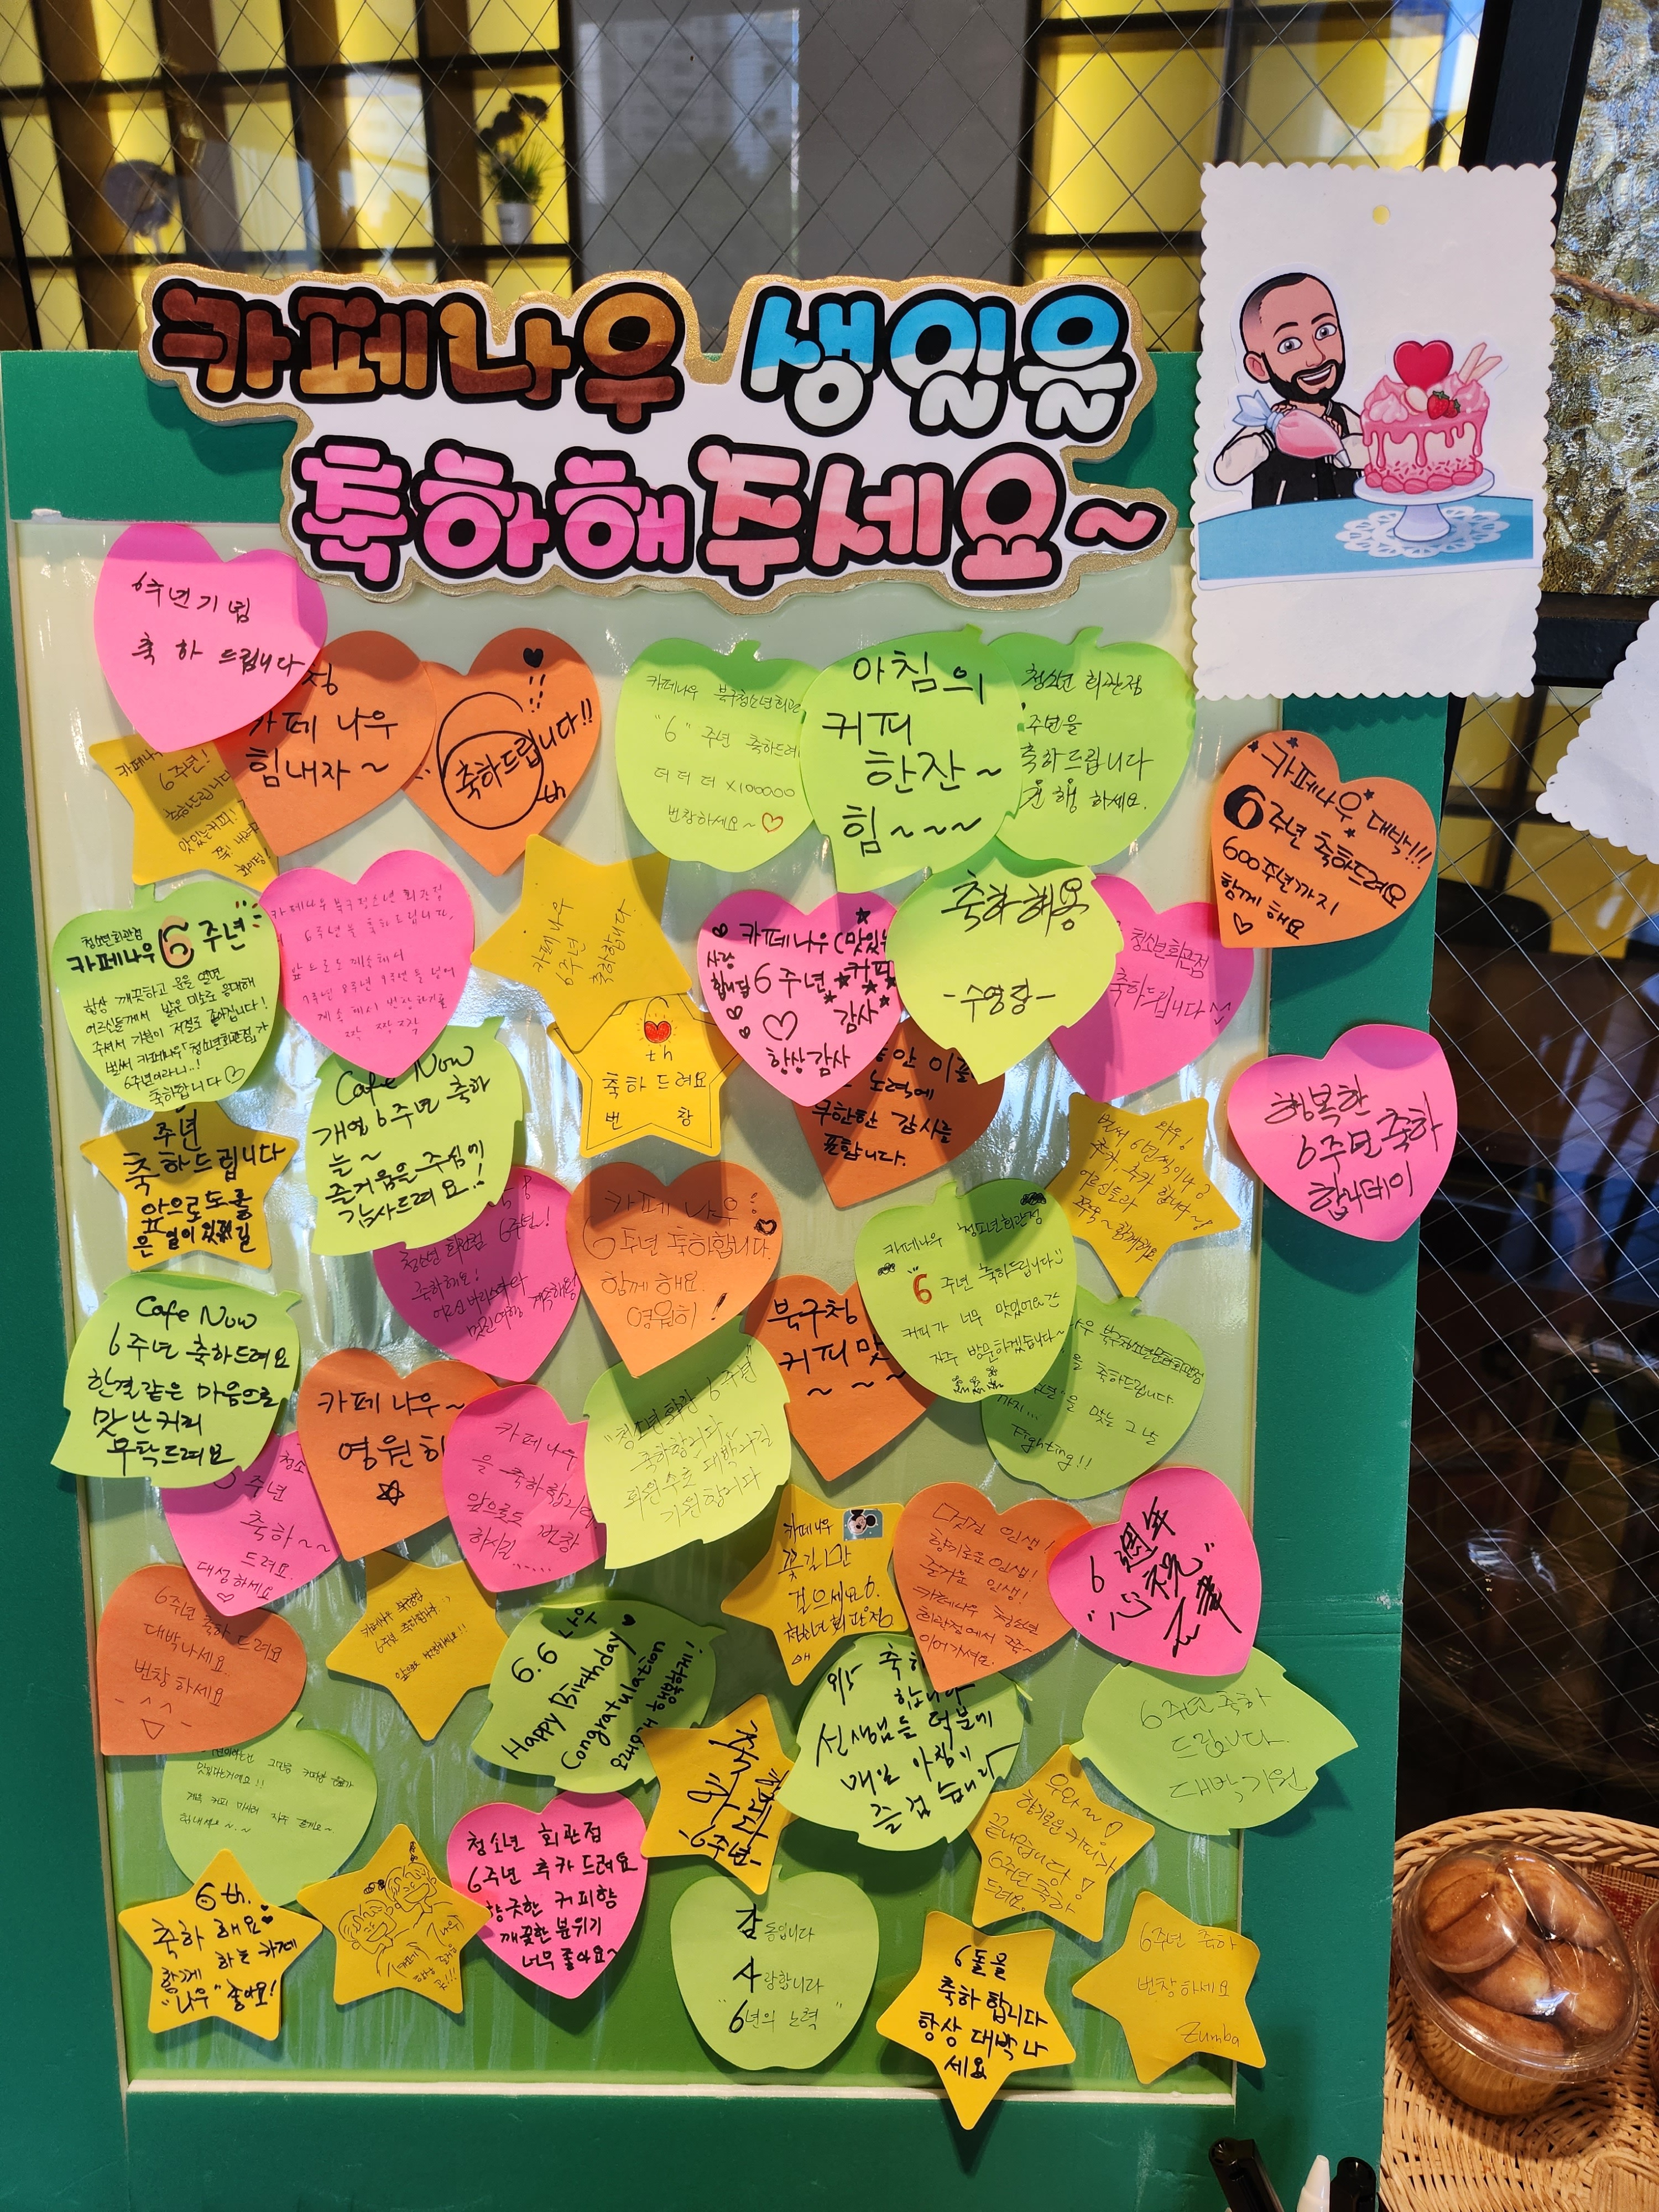 카페나우 생일을
축하해주세요~
6주년기념
축하 드립니다
카페 나우
힘내자~
축하드립니다!!
th
카페나우 북구청소년회관
"6" 주년 축하드려
더 더 더 x100000
번창하세요~♡
아침의
커피
한잔~
힘~~~
청소년 회관점
주년을
축하드립니다
하세요.
6주년!
축하드립니다
맛있는커피!
카페나우 대박!!!
6주년 축하드려요
600주년까지
함께 해요
♡
청소년회관점
카페나우 6주년
항상 깨끗하고 문을 열면
어르신들께서 밝은 미소로 응대해
주셔서 기분이 저절로 좋아집니다!
벌써 카페나우 청소년회관점가
6주년이라니..!
축하합니다♡
카페나우 북구청소년 회관점
6주년을 축하드립니다.
앞으로도 계속해서
7주년 8주년 9주년을 넘어
카페나우
6주년
축하합니다.
카페나우(맛있는
사랑
합니다 6주년, 커피
감사
항상감사
축하해용
-수영랑-
청소년회관점
축하드립니다
th
축하드려요
번창
노력에
무한한 감사를
표합니다.
Cafe Now
개업 6주년 축하
늘~
즐거움을 주심에
감사드려요!!
주년
축하드립니다
앞으로도
와우!
벌써 6년씩이나?
추카, 추카 합니다~!
어르신들과
쭈욱~ 함께해요
행복한
6주년축하
합니데이
6주년!
청소년 회관점
축하해요!
카페 나우!
6주년 축하합니다.
함께 해요.
영원히!
카페나우 청소년회관점
6 주년 축하드립니다
커피가 너무 맛있어요
자주 방문하겠습니다~
Cafe Now
6주년 축하드려요
한결같은 마음으로
맛난커피
부탁드려요
카페 나우~
영원히
☆
북구청
커피맛
~ ~ ~
축하드립니다.
을 맞는 그 날
까지...
Fighting!!
주년
축하~~
드려요.
대성하세요
♡
카페나우
을 축하합니다
앞으로도 번창
하시길.....
6주년
축하합니다
기원합니다
카페나우
꽃길만
걸으세요.
청소년회관점
멋진 인생!
향기로운 인생!
즐거운 인생!
카페나우 청소년
회관점에서 쭉~
이어가셔요.
6週年
"心祝"
6주년 축하 드려요
대박나세요.
번창하세요
카페나우 북구청점
6주년 축하합니다
6.6 나우
Happy Birthday
Congratulation
축하
합니다
선생님들 덕분에
매일 아침이
즐겁습니다
6주년 축하
드립니다.
대박기원
맛있나는거예요!!
-6주년-
우와~!
향기로운 커피가
끝내줍니당!
6주년 축하
드려요.
청소년 회관점
6주년 축카 드려요
향긋한 커피향
깨끗한 분위기
너무 좋아요~
6th.
축하해요
함께 하는 카페
"나우" 좋아요!
감동입니다
사랑합니다
"6년의 노력"
6돌을
축하합니다
항상 대박나
세요
6주년 축하
번창하세요
Zumba